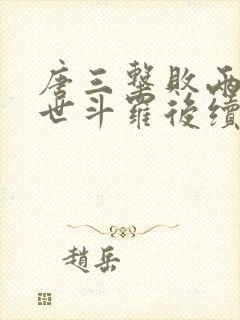 唐三擊敗兩
世斗羅後續
趙岳